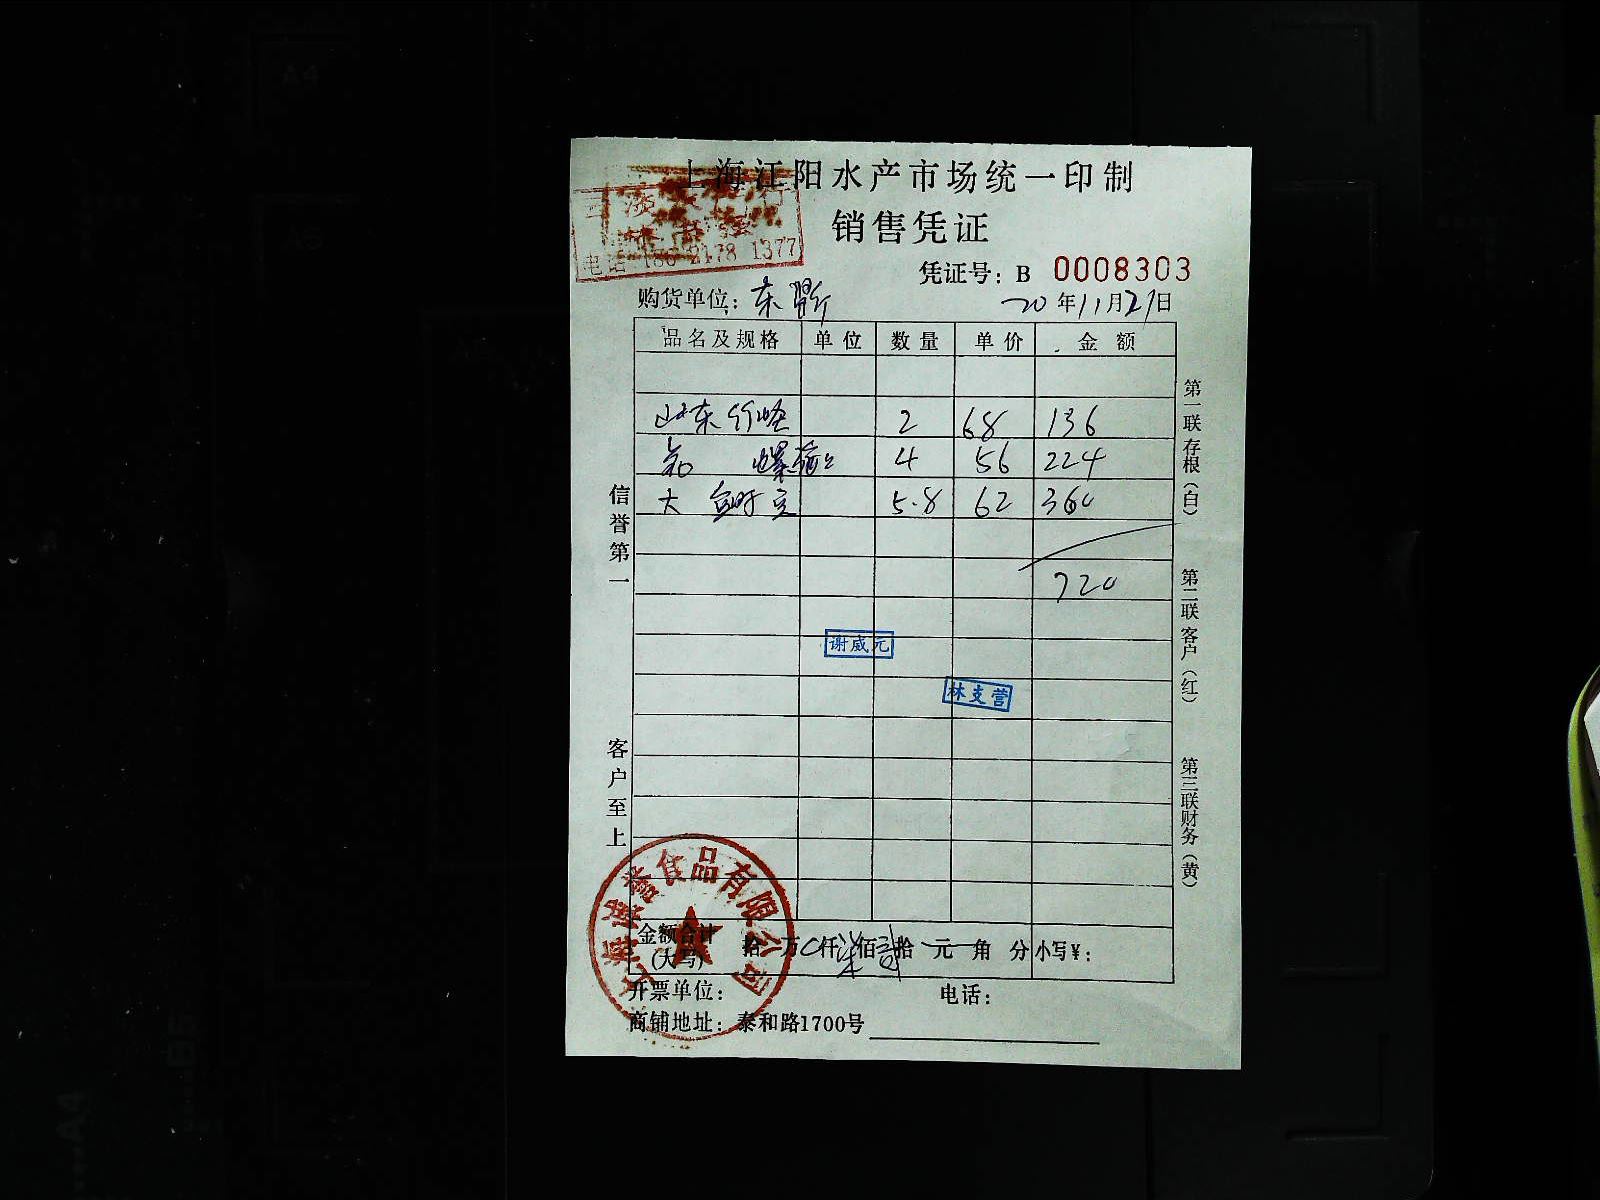 上海江阳水产市场统一印制
销售凭证
电话 186 2178 1377
凭证号: B 0008303
购货单位: 东
20年11月21日
品名及规格 单位 数量 单价 金额
山东竹蛏 2 68 136
螺 4 56 224
大 5.8 62 360
720
谢威元
林支营
信誉第一
客户至上
第一联存根(白)
第二联客户(红)
第三联财务(黄)
金额合计(大写) 拾 万 仟柒佰贰拾 元 角 分 小写¥:
开票单位: 电话:
商铺地址: 泰和路1700号
誉食品有限公司